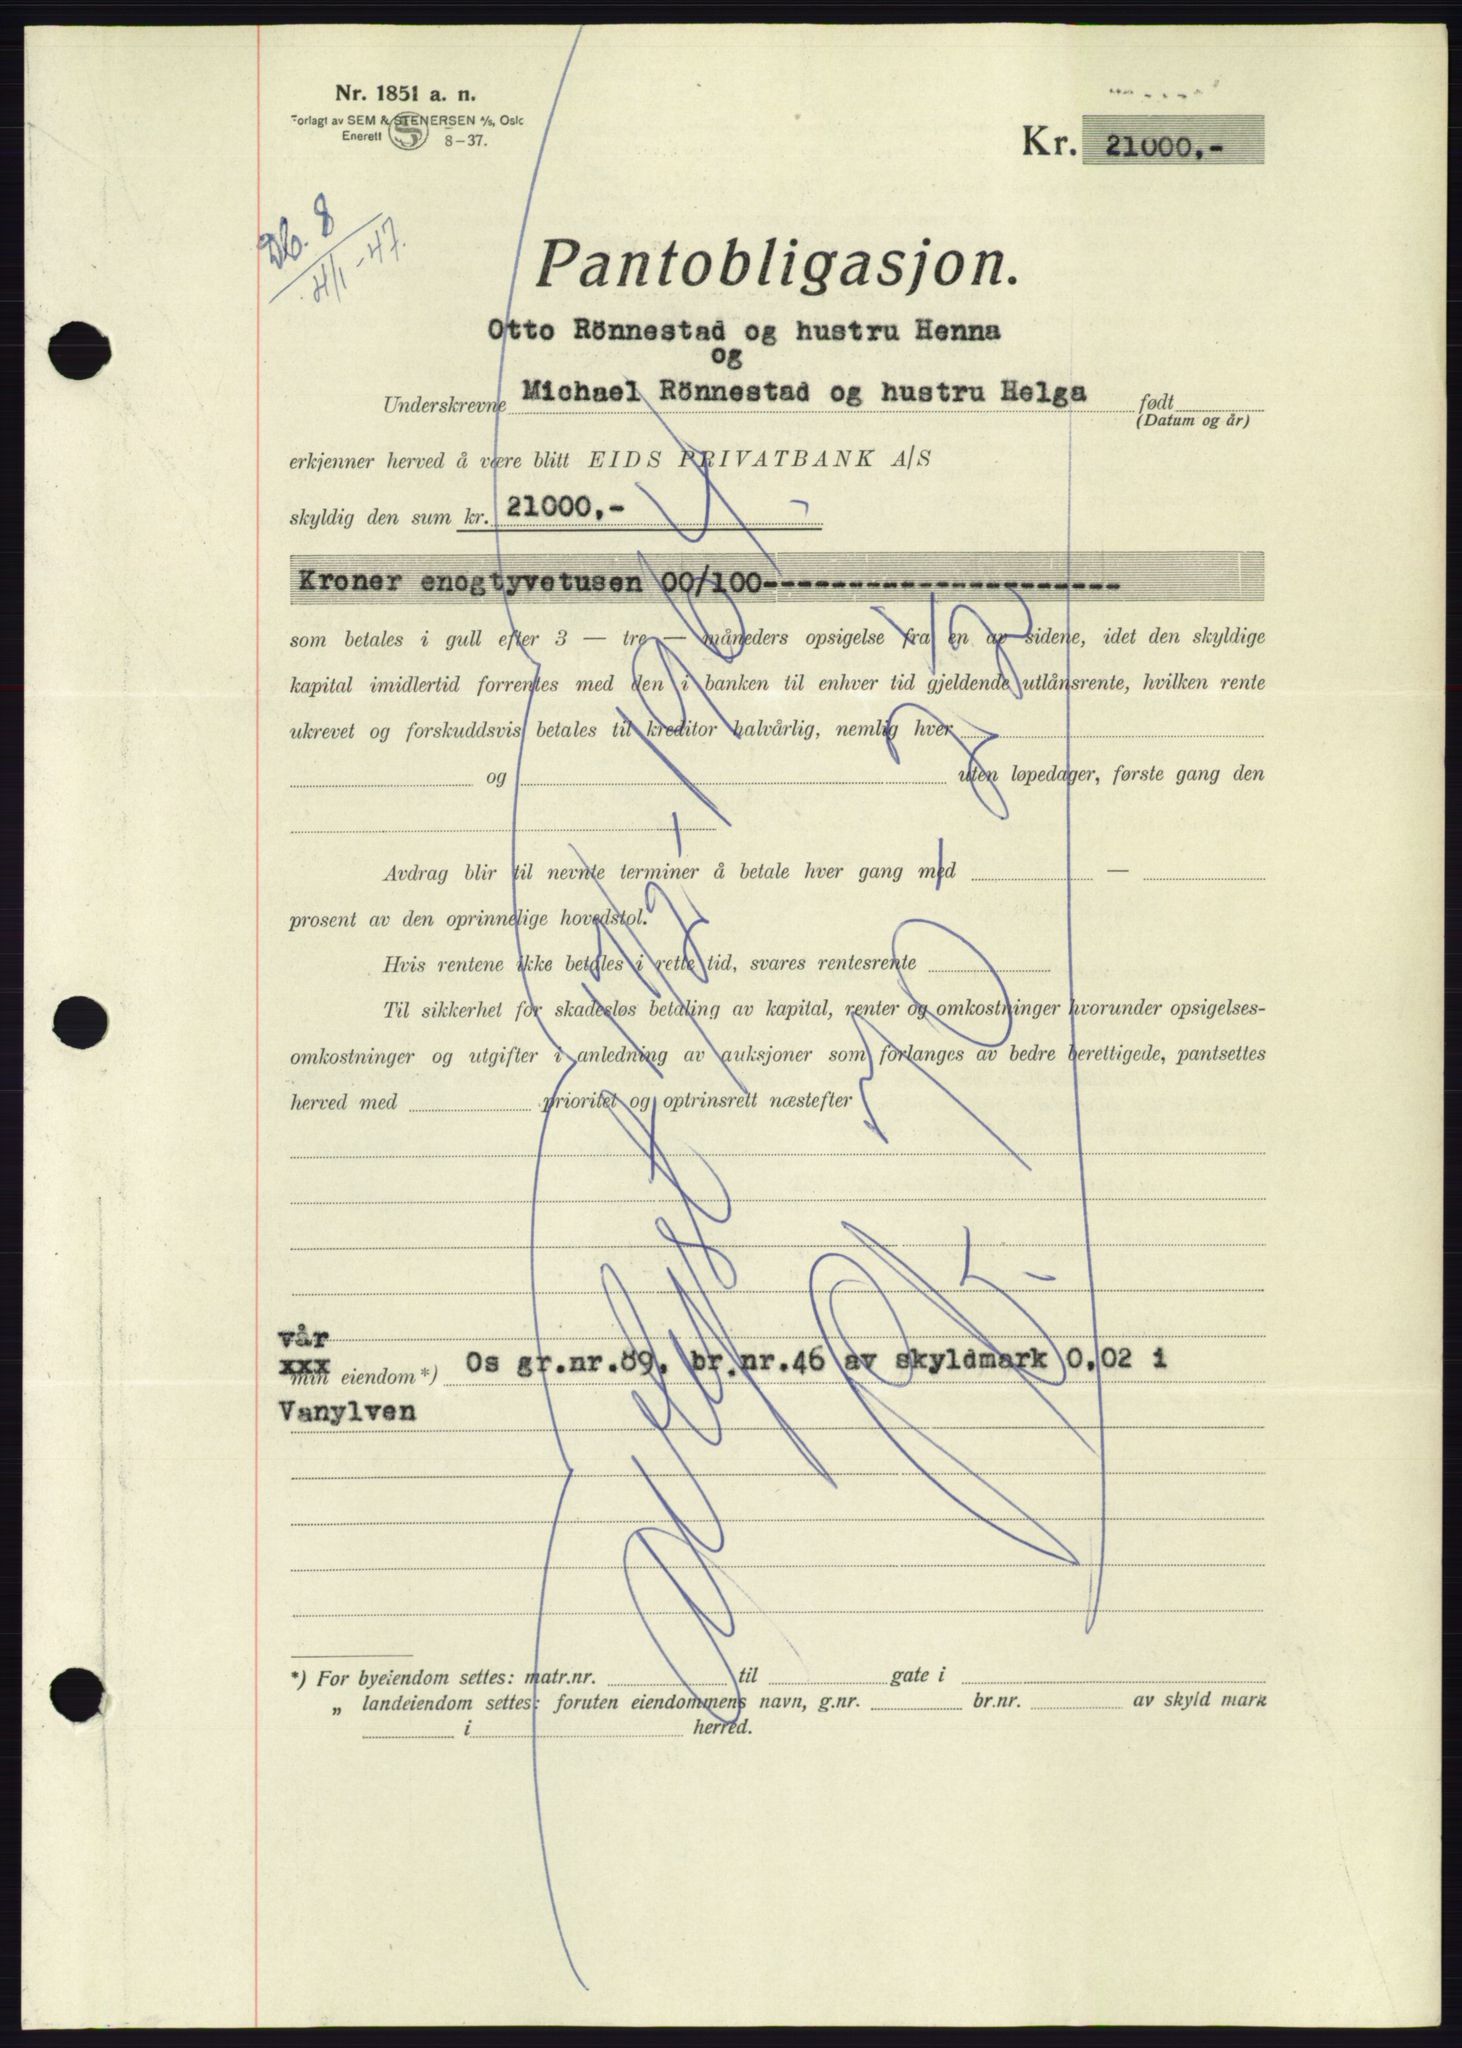 Nr. 1851 a. n.
Forlagt av SEM & STENERSEN A/S, Oslo
Enerett S 8-37.
Kr. 21000,-
Db. 8
4/1-47.
Pantobligasjon.
Otto Rönnestad og hustru Henna
og
Underskrevne Michael Rönnestad og hustru Helga født
(Datum og år)
erkjenner herved å være blitt EIDS PRIVATBANK A/S
skyldig den sum kr. 21000,-
Kroner enogtyvetusen 00/100---------------------
som betales i gull efter 3 — tre — måneders opsigelse fra en av sidene, idet den skyldige
kapital imidlertid forrentes med den i banken til enhver tid gjeldende utlånsrente, hvilken rente
ukrevet og forskuddsvis betales til kreditor halvårlig, nemlig hver
og uten løpedager, første gang den
Avdrag blir til nevnte terminer å betale hver gang med —
prosent av den oprinnelige hovedstol.
Hvis rentene ikke betales i rette tid, svares rentesrente
Til sikkerhet for skadesløs betaling av kapital, renter og omkostninger hvorunder opsigelses-
omkostninger og utgifter i anledning av auksjoner som forlanges av bedre berettigede, pantsettes
herved med prioritet og optrinsrett næstefter
vår
xxx
min eiendom*) Os gr.nr.89, br.nr.46 av skyldmark 0,02 i
Vanylven
*) For byeiendom settes: matr.nr. til gate i
„ landeiendom settes: foruten eiendommens navn, g.nr. br.nr. av skyld mark
i herred.